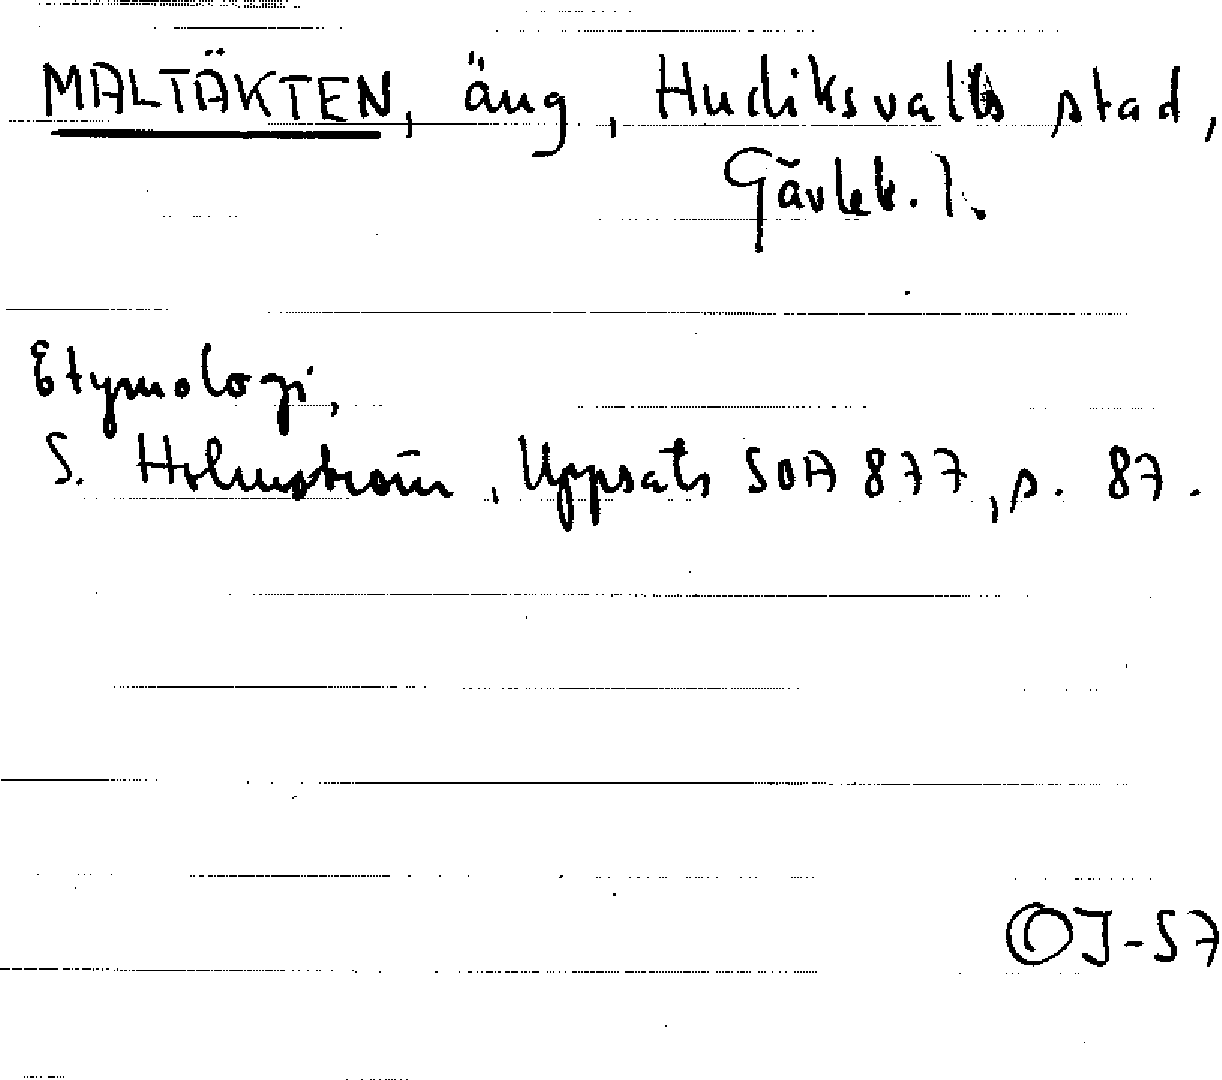 MALTÄKTEN, äng, Hudiksvalls stad,
Gävleb. l.
Etymologi,
S. Holmström, Uppsats SOA 877, s. 87.
OJ-57